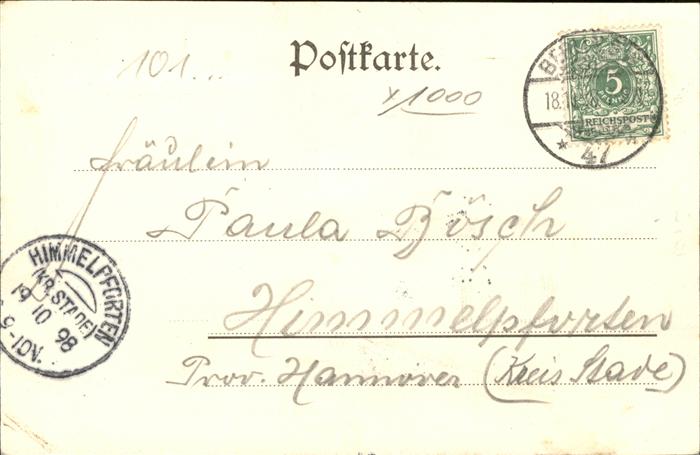 101...
Postkarte.
x/1000
5
REICHSPOST
18.10.
47
Fräulein
Paula Bösch
Himmelpforten
Prov. Hannover (Kreis Stade)
HIMMELPFORTEN
(KR. STADE)
19 10 98
9-10V.